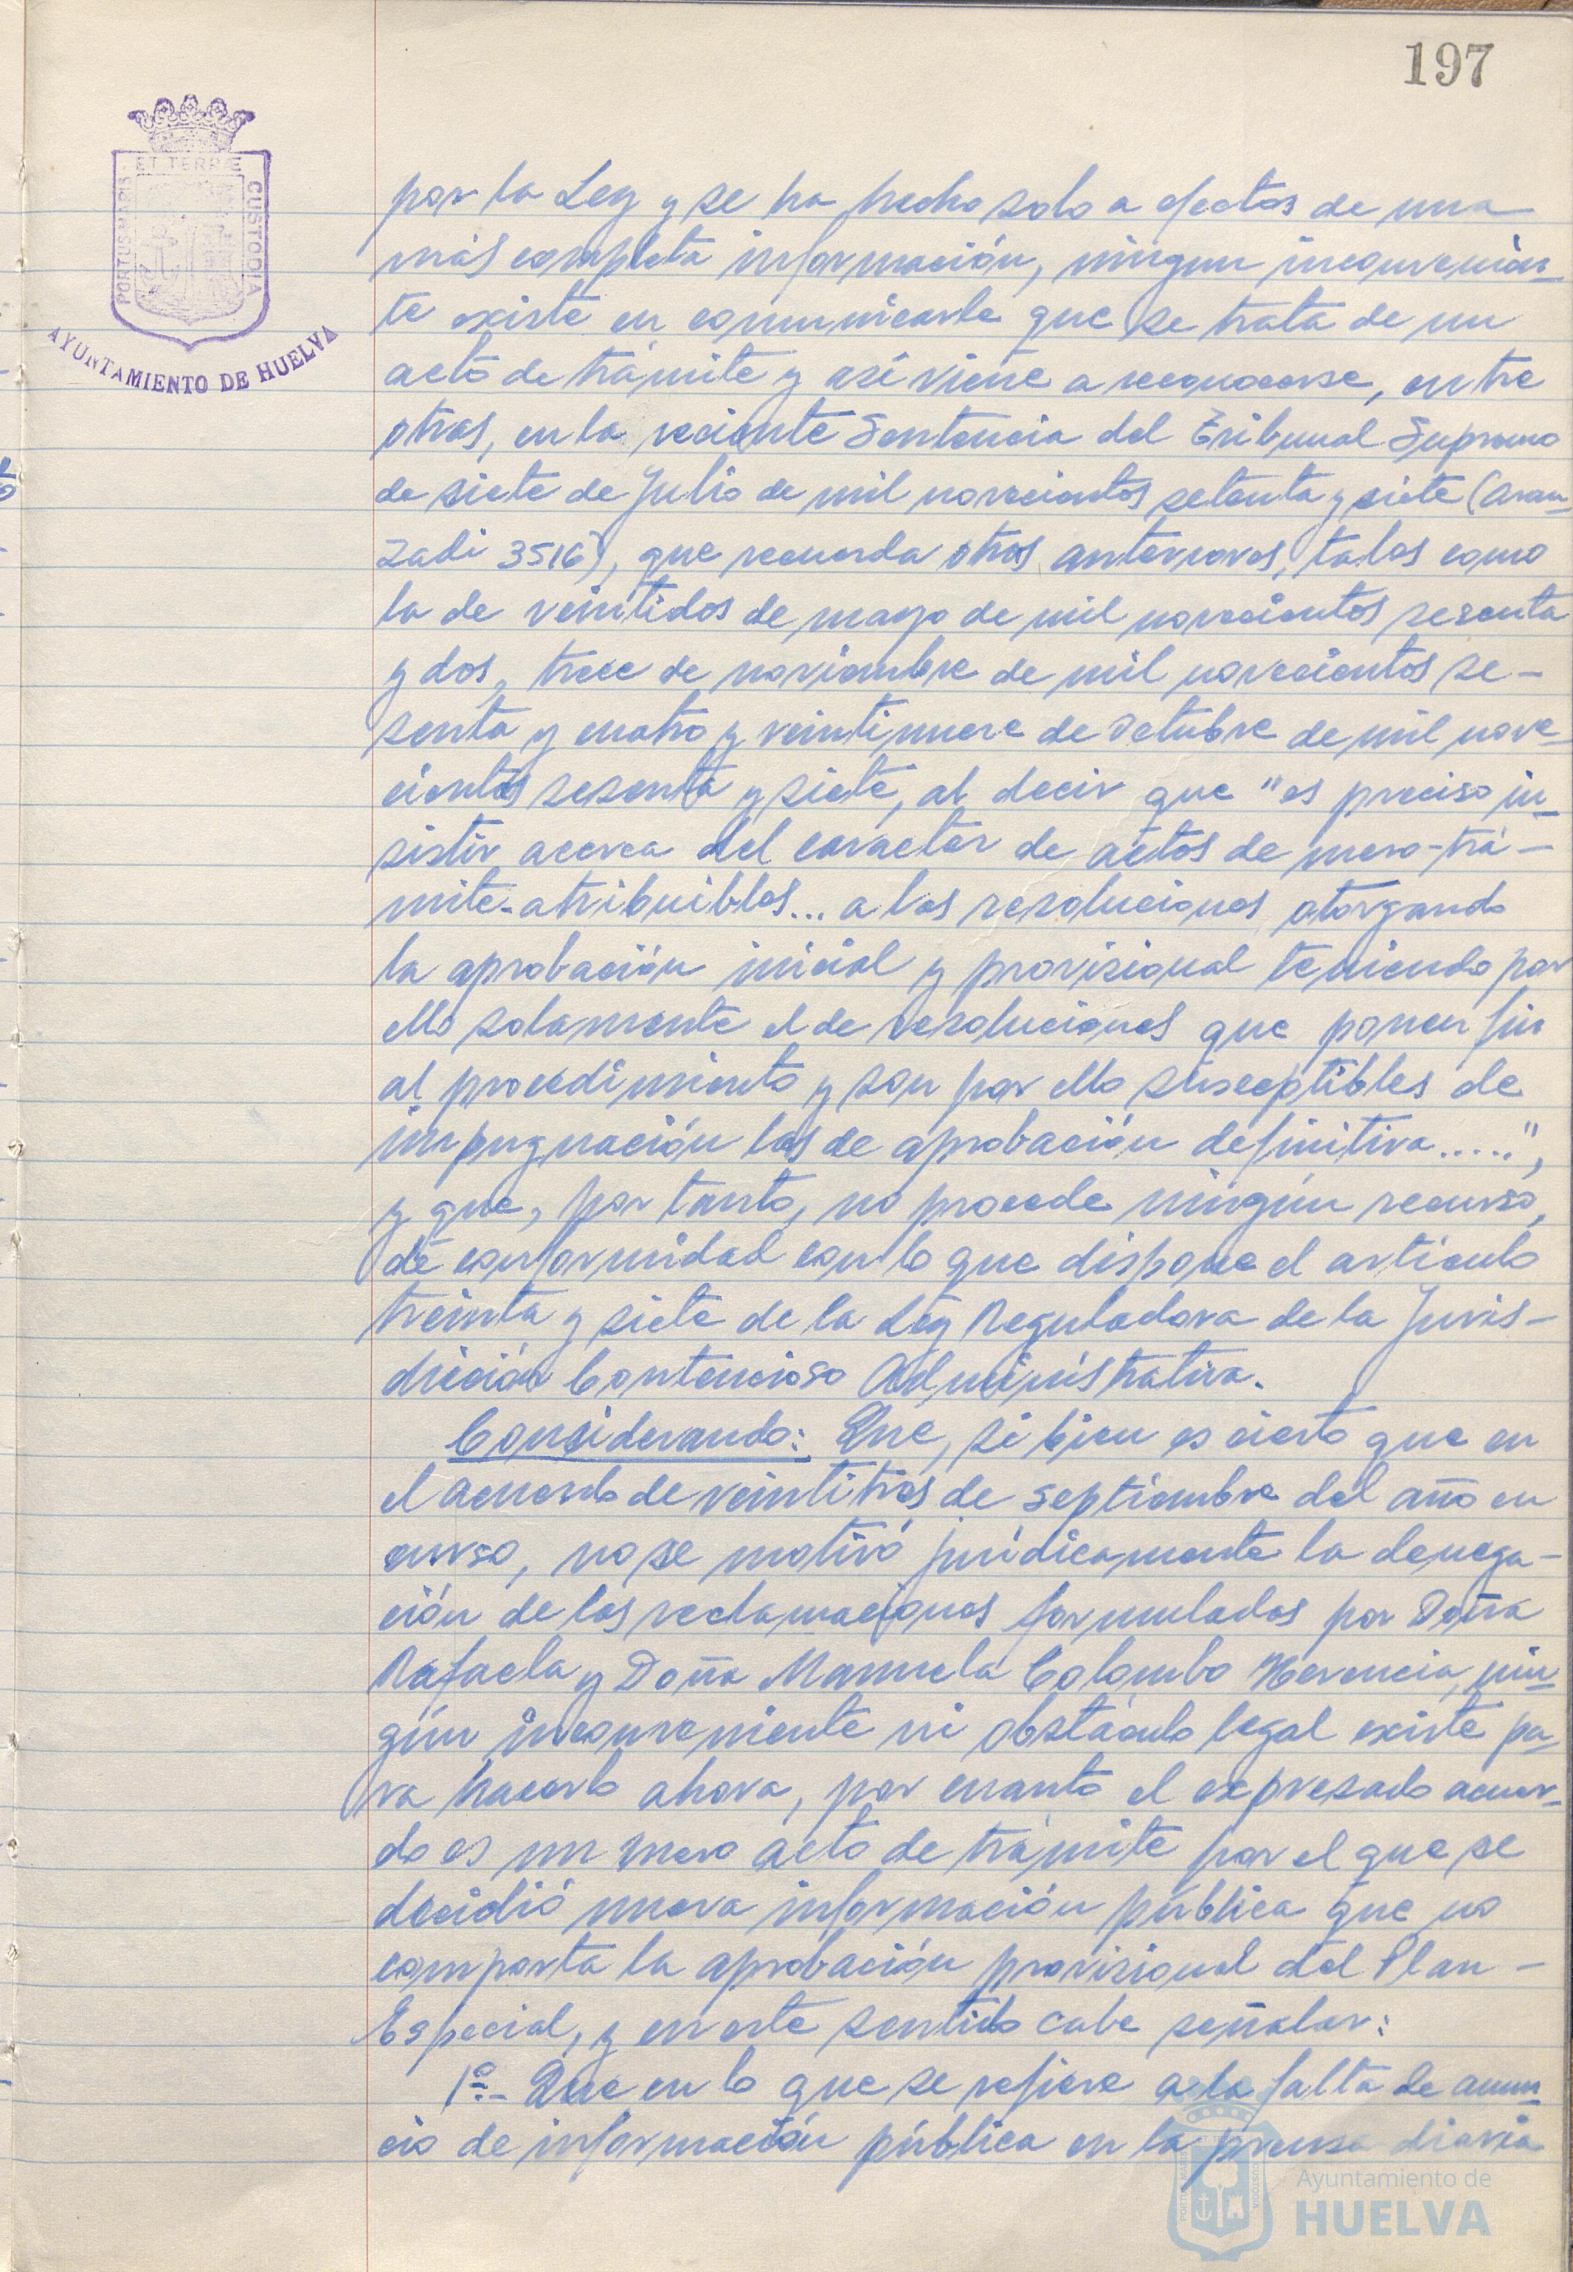 197
ET TERRÆ
PORTUS MARIS
CUSTODIA
AYUNTAMIENTO DE HUELVA
por la Ley y se ha hecho solo a efectos de una
más completa información, ningun inconvenien-
te existe en comunicarle que se trata de un
acto de trámite y así viene a reconocerse, entre
otras, en la reciente Sentencia del Tribunal Supremo
de siete de Julio de mil novecientos setenta y siete (Aran-
zadi 3516), que recuerda otras anteriores, tales como
la de veintidos de mayo de mil novecientos sesenta
y dos, trece de noviembre de mil novecientos se-
senta y cuatro y veintinueve de octubre de mil nove-
cientos sesenta y siete, al decir que "es preciso in-
sistir acerca del caracter de actos de mero-trá-
mite-atribuibles... a las resoluciones otorgando
la aprobación inicial y provisional teniendo por
ello solamente el de resoluciones que ponen fin
al procedimiento y son por ello susceptibles de
impugnación las de aprobación definitiva.....",
y que, por tanto, no procede ningún recurso,
de conformidad con lo que dispone el artículo
treinta y siete de la Ley Reguladora de la Juris-
dicción Contencioso Administrativa.
Considerando: Que, si bien es cierto que en
el acuerdo de veintitres de septiembre del año en
curso, no se motivó jurídicamente la denega-
ción de las reclamaciones formuladas por Doña
Rafaela y Doña Manuela Colombo Herencia, nin-
gún inconveniente ni obstáculo legal existe pa-
ra hacerlo ahora, por cuanto el expresado acuer-
do es un mero acto de trámite por el que se
decidió nueva información pública que no
comporta la aprobación provisional del Plan -
Especial, y en este sentido cabe señalar:
1º.- Que en lo que se refiere a la falta de anun-
cio de información pública en la prensa diaria
Ayuntamiento de
HUELVA